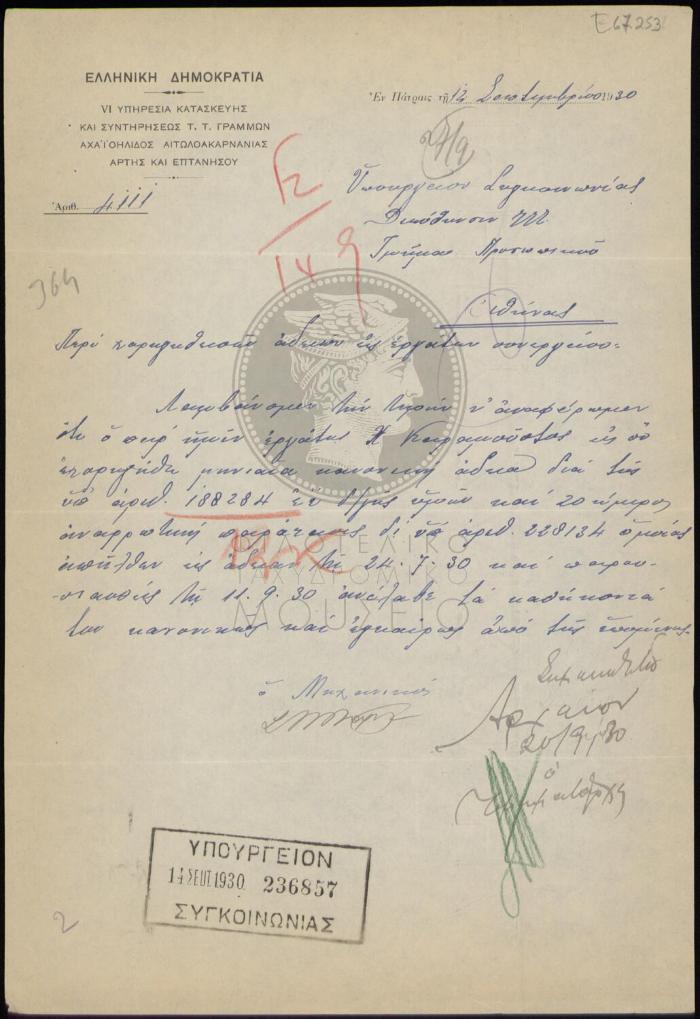 Ε67.253
ΕΛΛΗΝΙΚΗ ΔΗΜΟΚΡΑΤΙΑ
VI ΥΠΗΡΕΣΙΑ ΚΑΤΑΣΚΕΥΗΣ
ΚΑΙ ΣΥΝΤΗΡΗΣΕΩΣ Τ. Τ. ΓΡΑΜΜΩΝ
ΑΧΑΪΟΗΛΙΔΟΣ ΑΙΤΩΛΟΑΚΑΡΝΑΝΙΑΣ
ΑΡΤΗΣ ΚΑΙ ΕΠΤΑΝΗΣΟΥ
Ἀριθ. 4111
Ἐν Πάτραις τῇ 12 Σεπτεμβρίου 1930
Ὑπουργεῖον Συγκοινωνίας
Διεύθυνσιν
Τμῆμα Προσωπικοῦ
Ἀθήνας
14
364
Περὶ χορηγηθεισῶν ἀδειῶν εἰς ἐργάτην συνεργείου.
Λαμβάνομεν τὴν τιμὴν ν' ἀναφέρωμεν
ὅτι ὁ παρ' ἡμῖν ἐργάτης Χ εἰς ὃν
ἐχορηγήθη μηνιαία κανονικὴ ἄδεια διὰ τῆς
ὑπ' ἀριθ. 188284 ἐ. δ/γῆς ὑμῶν καὶ 20ήμερος
ἀναρρωτικὴ παράτασις δι' ὑπ' ἀριθ. 228134 ὁμοίας
ἀπῆλθεν εἰς ἄδειαν τῇ 24.7.30 καὶ παρου-
σιασθεὶς τῇ 11.9.30 ἀνέλαβε τὰ καθήκοντά
του κανονικῶς καὶ ἐγκαίρως ἀπὸ τῆς ἑπομένης.
ΦΙΛΟΤΕΛΙΚΟ
ΤΑΧΥΔΡΟΜΙΚΟ
ΜΟΥΣΕΙΟ
ὁ Μηχανικὸς
Ἀρχεῖον
20/9/30
ὁ
Τμηματάρχης
ΥΠΟΥΡΓΕΙΟΝ
14 ΣΕΠ 1930 236857
ΣΥΓΚΟΙΝΩΝΙΑΣ
2